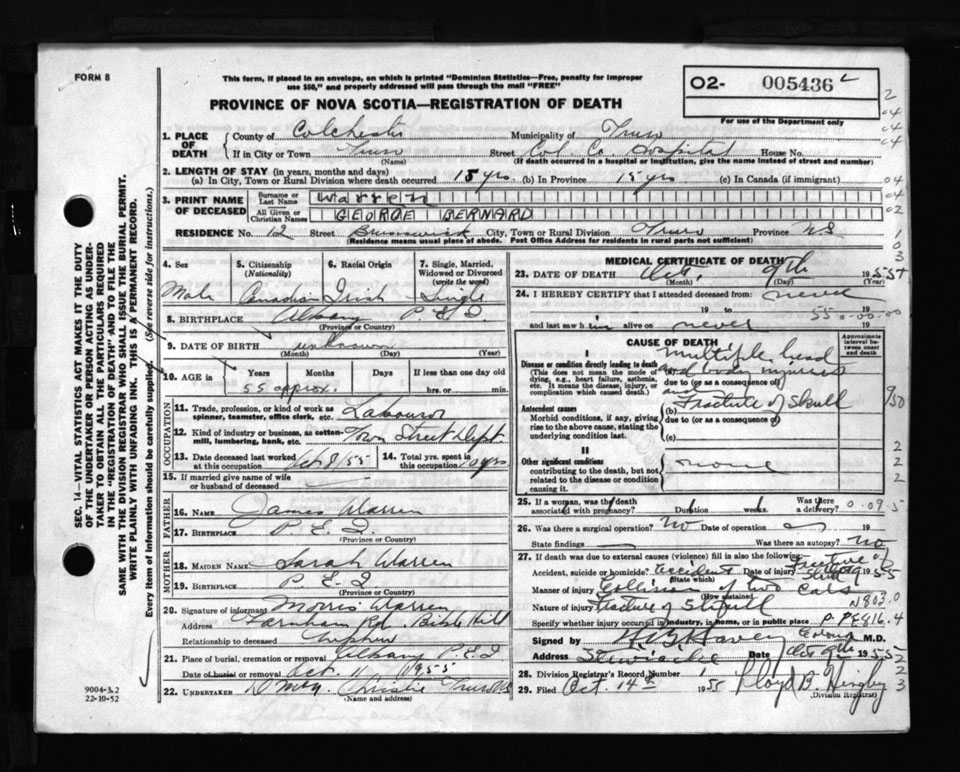 FORM 8
This form, if placed in an envelope, on which is printed "Dominion Statistics—Free, penalty for improper
use $50," and properly addressed will pass through the mail "FREE"
O2- 005436
For use of the Department only
PROVINCE OF NOVA SCOTIA—REGISTRATION OF DEATH
1. PLACE OF DEATH County of Colchester Municipality of Truro
If in City or Town Truro Street Col. Co. Hospital House No.
(Name) (If death occurred in a hospital or institution, give the name instead of street and number)
2. LENGTH OF STAY (in years, months and days)
(a) In City, Town or Rural Division where death occurred 15 yrs (b) In Province 15 yrs (c) In Canada (if immigrant)
3. PRINT NAME OF DECEASED Surname or Last Name Warren
All Given or Christian Names GEORGE BERNARD
RESIDENCE No. 12 Street Brunswick Truro Province NS
(Residence means usual place of abode. Post Office Address for residents in rural parts not sufficient)
4. Sex Male
5. Citizenship (Nationality) Canadian
6. Racial Origin Irish
7. Single, Married, Widowed or Divorced (write the word) Single
8. BIRTHPLACE Albany P E I
(Province or Country)
9. DATE OF BIRTH unknown
(Month) (Day) (Year)
10. AGE in Years Months Days If less than one day old
55 approx. hrs. or min.
OCCUPATION
11. Trade, profession, or kind of work as spinner, teamster, office clerk, etc. Labourer
12. Kind of industry or business, as cotton-mill, lumbering, bank, etc. Town Street Dept
13. Date deceased last worked at this occupation Oct 8/55 14. Total yrs. spent in this occupation 10 yrs
15. If married give name of wife or husband of deceased
FATHER
16. NAME James Warren
17. BIRTHPLACE P. E. I.
(Province or Country)
MOTHER
18. MAIDEN NAME Sarah Warren
19. BIRTHPLACE P. E. I
(Province or Country)
20. Signature of informant Morris Warren
Address Farnham Rd. Bible Hill
Relationship to deceased nephew
21. Place of burial, cremation or removal Albany P.E.I
Date of burial or removal Oct. 11 1955
22. UNDERTAKER Christie Truro NS
(Name and address)
MEDICAL CERTIFICATE OF DEATH
23. DATE OF DEATH Oct. 9th 1955
(Month) (Day) (Year)
24. I HEREBY CERTIFY that I attended deceased from never
19 to 19
and last saw him alive on never 19
CAUSE OF DEATH
Approximate interval between onset and death
I
Disease or condition directly leading to death
(This does not mean the mode of dying, e.g., heart failure, asthenia, etc. It means the disease, injury, or complication which caused death.)
multiple head and body injuries
due to (or as a consequence of)
Antecedent causes
Morbid conditions, if any, giving rise to the above cause, stating the underlying condition last.
(b) Fracture of Skull
due to (or as a consequence of)
(c)
II
Other significant conditions
contributing to the death, but not related to the disease or condition causing it.
none
25. If a woman, was the death associated with pregnancy? Duration weks. Was there a delivery?
26. Was there a surgical operation? No Date of operation 19
State findings Was there an autopsy? No
27. If death was due to external causes (violence) fill in also the following.
Accident, suicide or homicide? accident Date of injury 1955
(State which)
Manner of injury Collision of two cars
(How sustained)
Nature of injury Fracture of Skull N803.0
Specify whether injury occurred in industry, in home, or in public place P. PE816.4
Signed by M.D.
Address Stewiacke Date Oct 9th 1955
28. Division Registrar's Record Number
29. Filed Oct. 14th 1955 Lloyd B.
(Division Registrar)
SEC. 14—VITAL STATISTICS ACT MAKES IT THE DUTY
OF THE UNDERTAKER OR PERSON ACTING AS UNDERTAKER TO OBTAIN ALL THE PARTICULARS REQUIRED
IN THE "REGISTRATION OF DEATH" AND TO FILE THE
SAME WITH THE DIVISION REGISTRAR WHO SHALL ISSUE THE BURIAL PERMIT.
WRITE PLAINLY WITH UNFADING INK. THIS IS A PERMANENT RECORD.
Every item of information should be carefully supplied. (See reverse side for instructions.)
9004-3.2
22-10-52